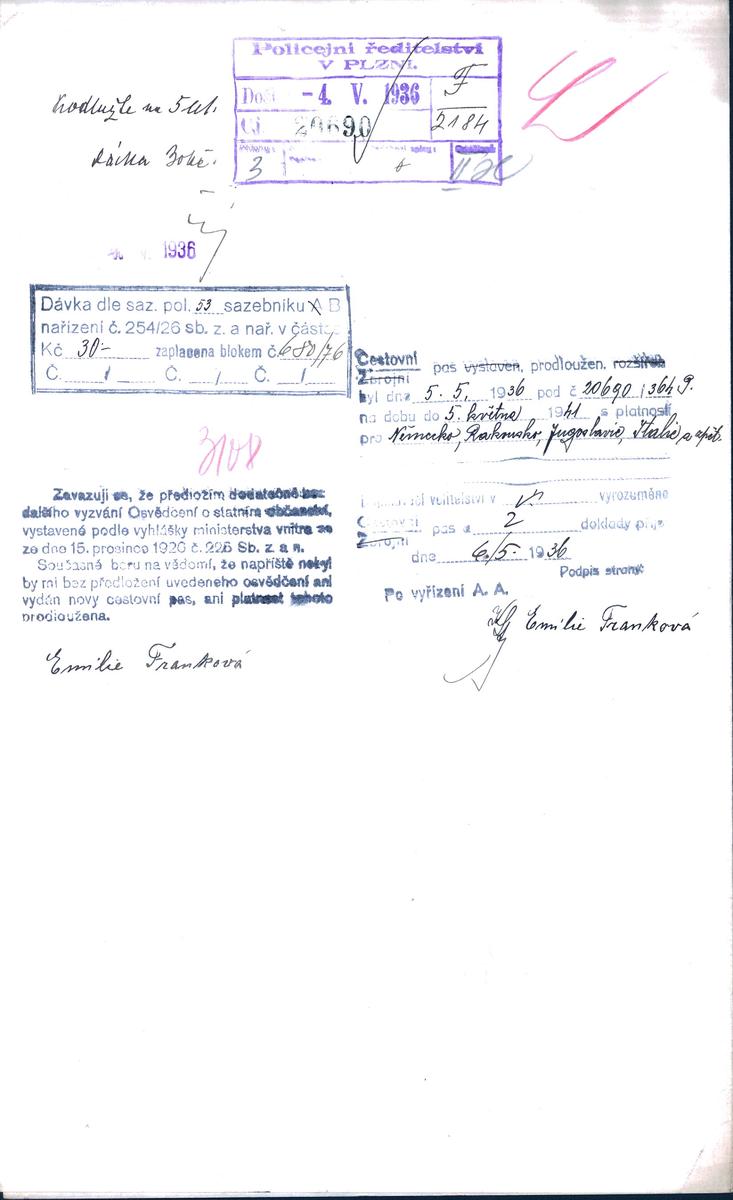 Policejní ředitelství
V PLZNI.
Došlo -4. V. 1936
F
2184
Čj. 20690
3
na 5 let.
dávka 30 Kč.
1936
Dávka dle saz. pol. 53 sazebníku A B
nařízení č. 254/26 sb. z. a nař. v částce
Kč 30.- zaplacena blokem č. 680/76
Č. / Č. / Č. /
3108
Cestovní pas vystaven, prodloužen, rozšířen
Zbrojní
byl dne 5. 5. 1936 pod č 20690
na dobu do 5. května 1941 s platností
pro Německo, Rakousko, Jugoslavie, Italie a zpět.
Zavazuji se, že předložím dodatečně bez
dalšího vyzvání Osvědčení o statním občanství,
vystavené podle vyhlášky ministerstva vnitra se
ze dne 15. prosince 1926 č. 225 Sb. z. a n.
Současně beru na vědomí, že napříště nebyl
by mi bez předložení uvedeného osvědčení ani
vydán nový cestovní pas, ani platnost tohoto
prodloužena.
velitelství v vyrozuměno
Cestovní pas a 2 doklady přij.
Zbrojní
dne 6/5. 1936
Podpis strany:
Po vyřízení A. A.
Emilie Franková
Emilie Franková